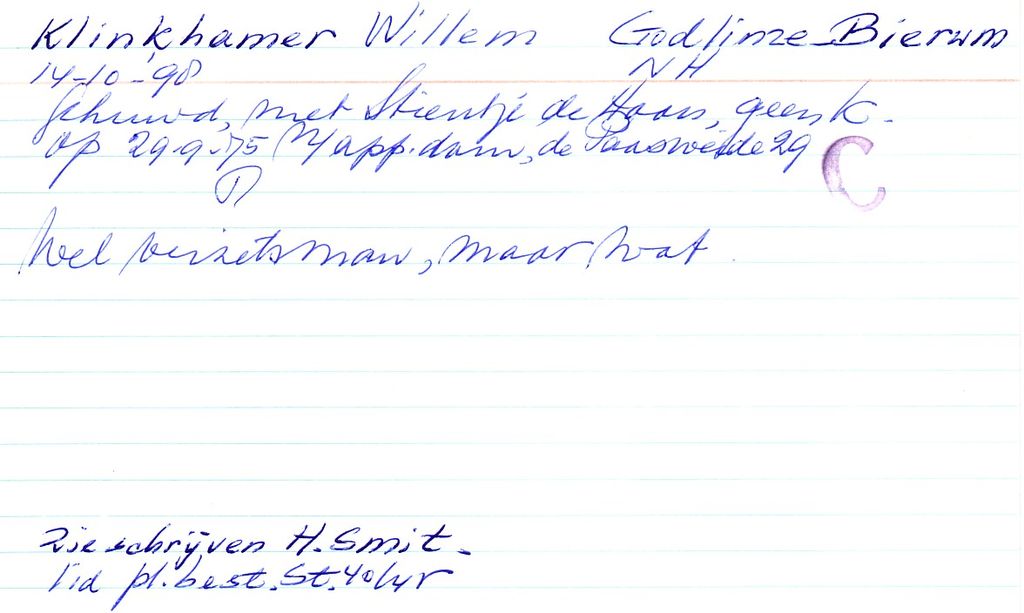 Klinkhamer Willem Godlinze-Bierum
14-10-98 NH
Gehuwd, met Stientje de Haan, geen K.
op 29-9-75 app.dam, de Paasweide 29
C
Wel verzetsman, maar wat.
Zie schrijven H. Smit.
lid pl. best. St. 40/45